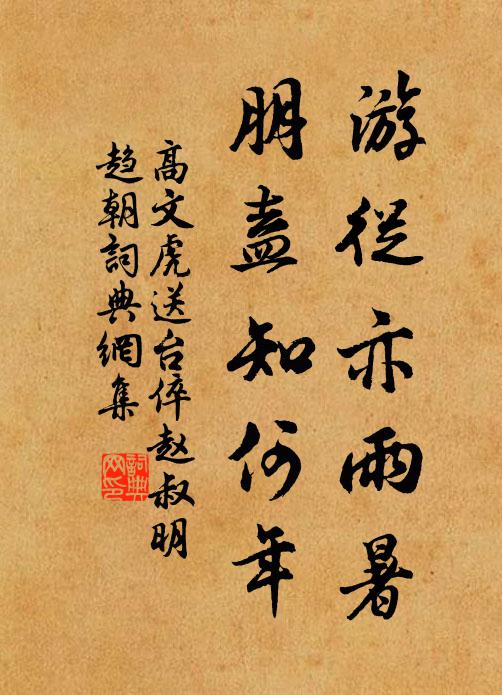 游從亦兩暑
朋盍知何年
高文虎送台倅赵叔明
趋朝詞典網集
詞典网印